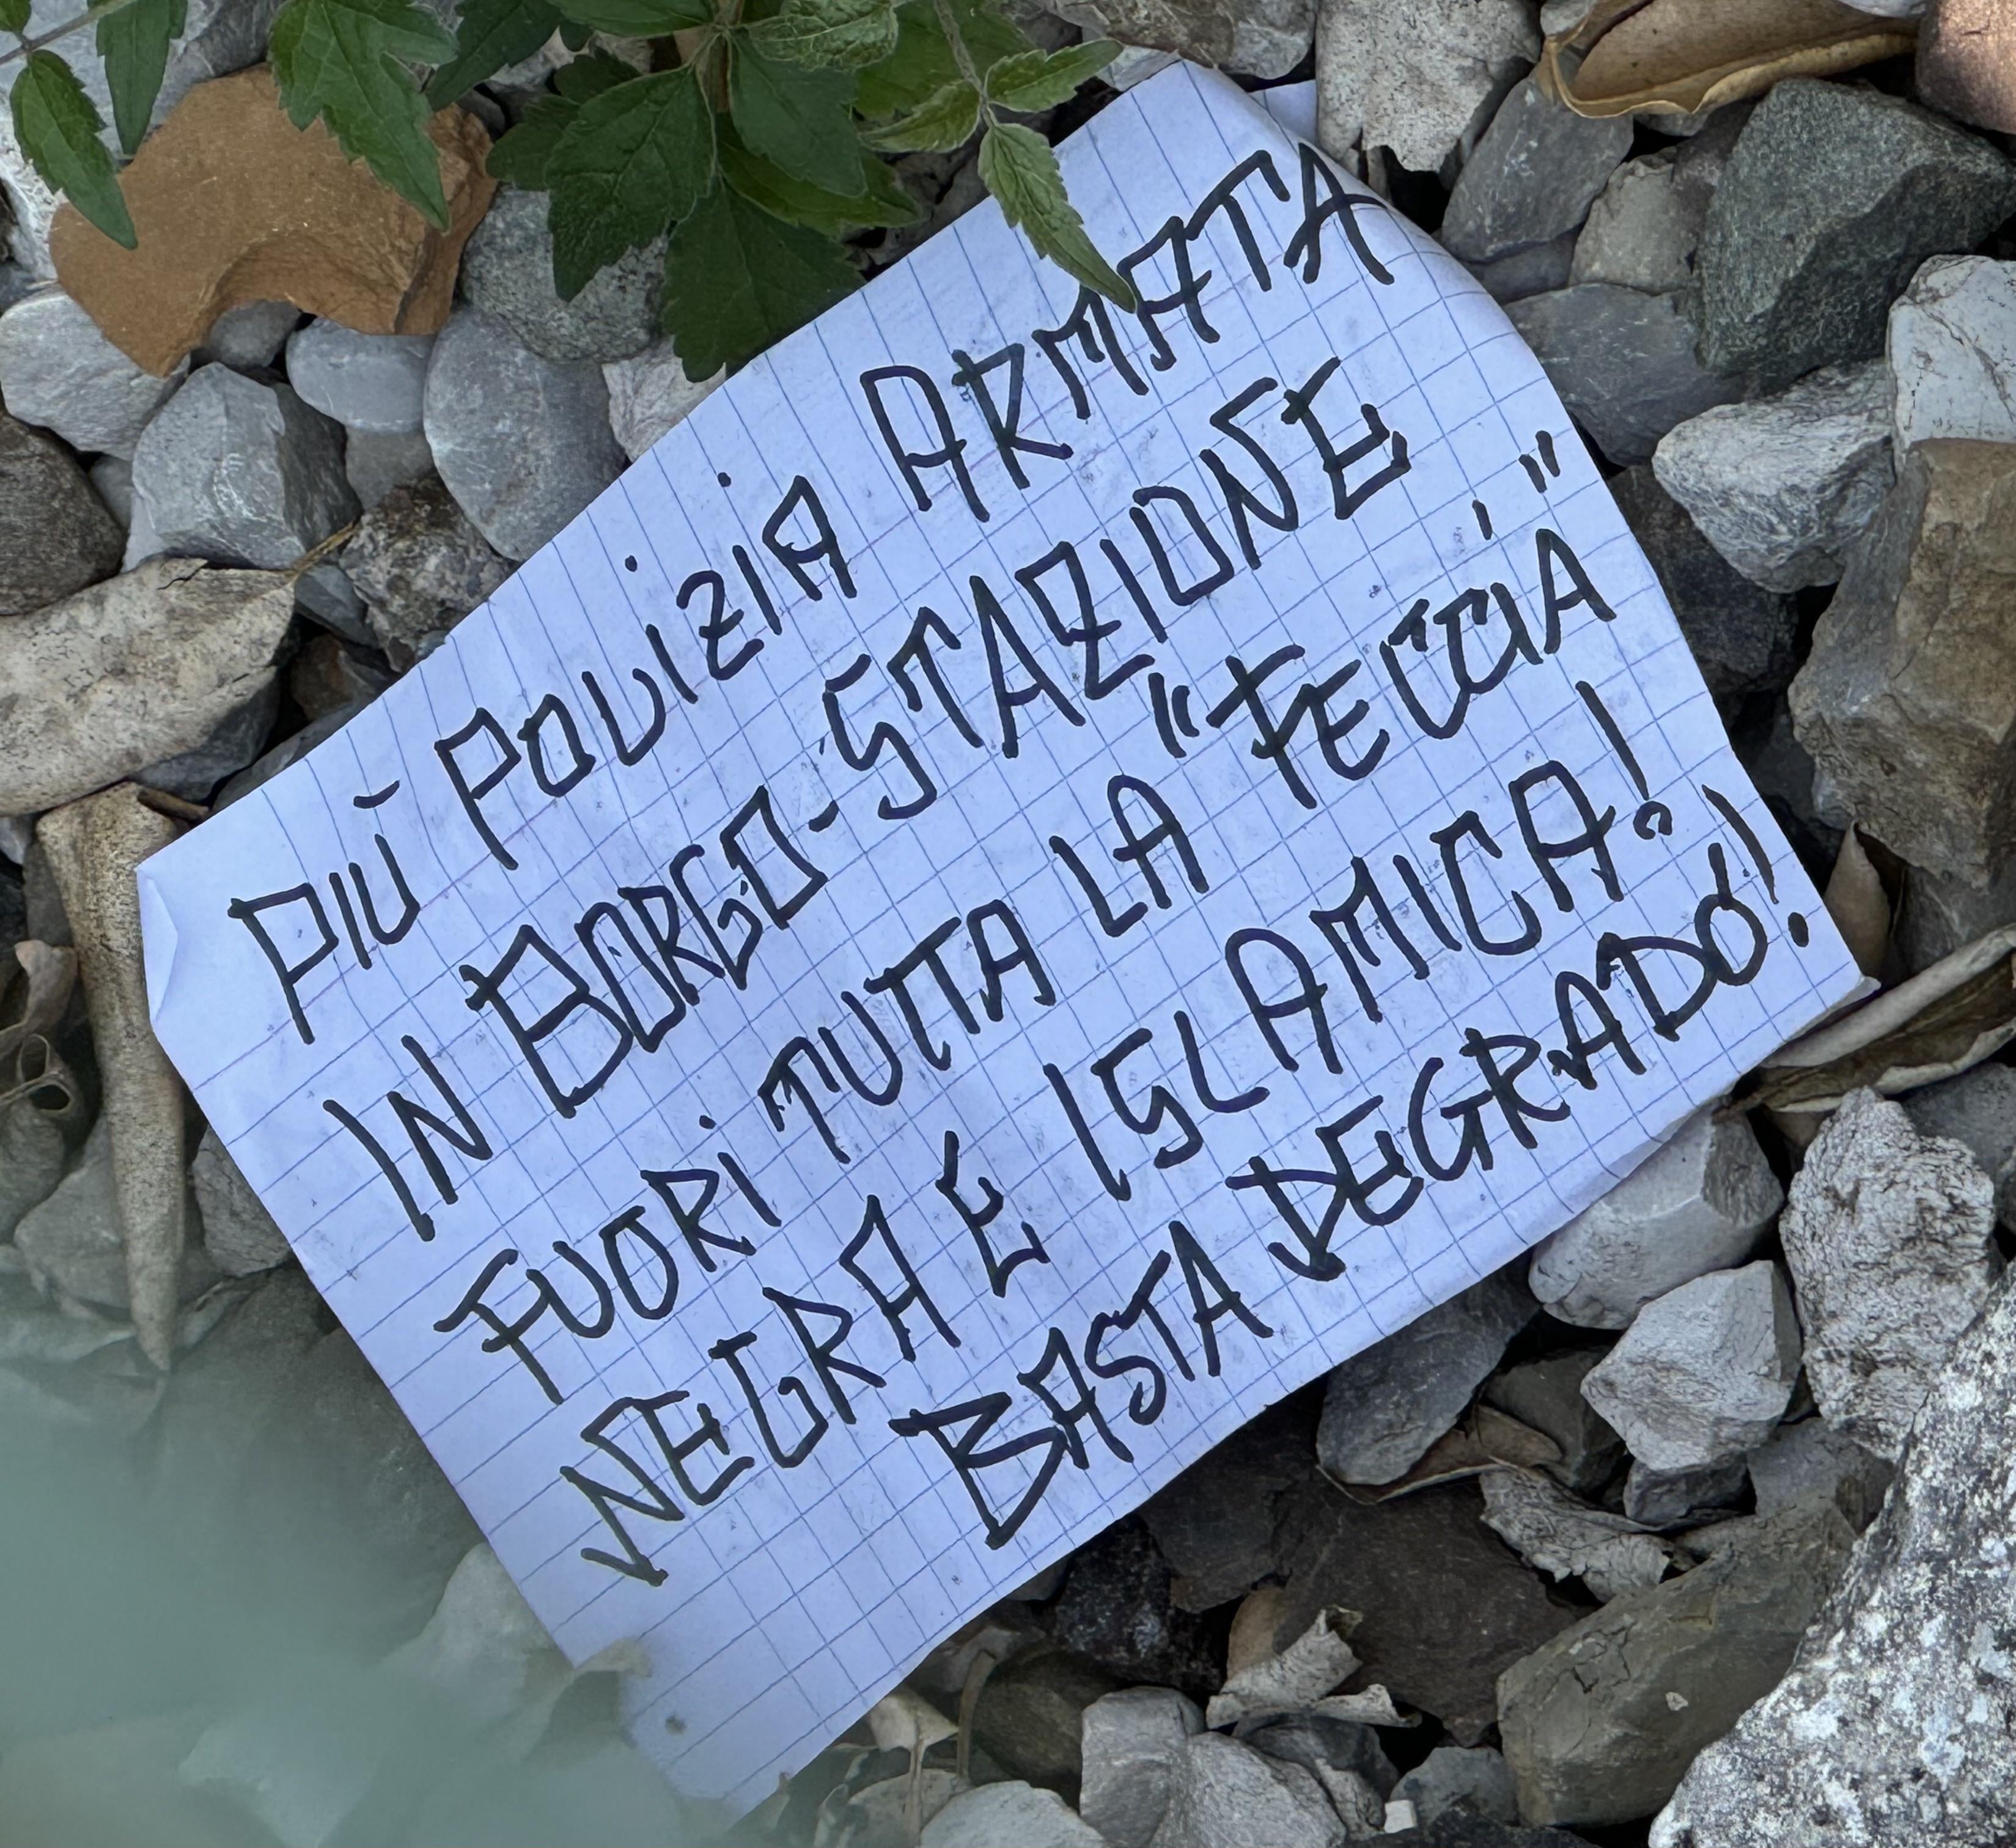 PIÙ POLIZIA ARMATA
IN BORGO-STAZIONE
FUORI TUTTA LA "FECCIA"
NEGRA E ISLAMICA!
BASTA DEGRADO!